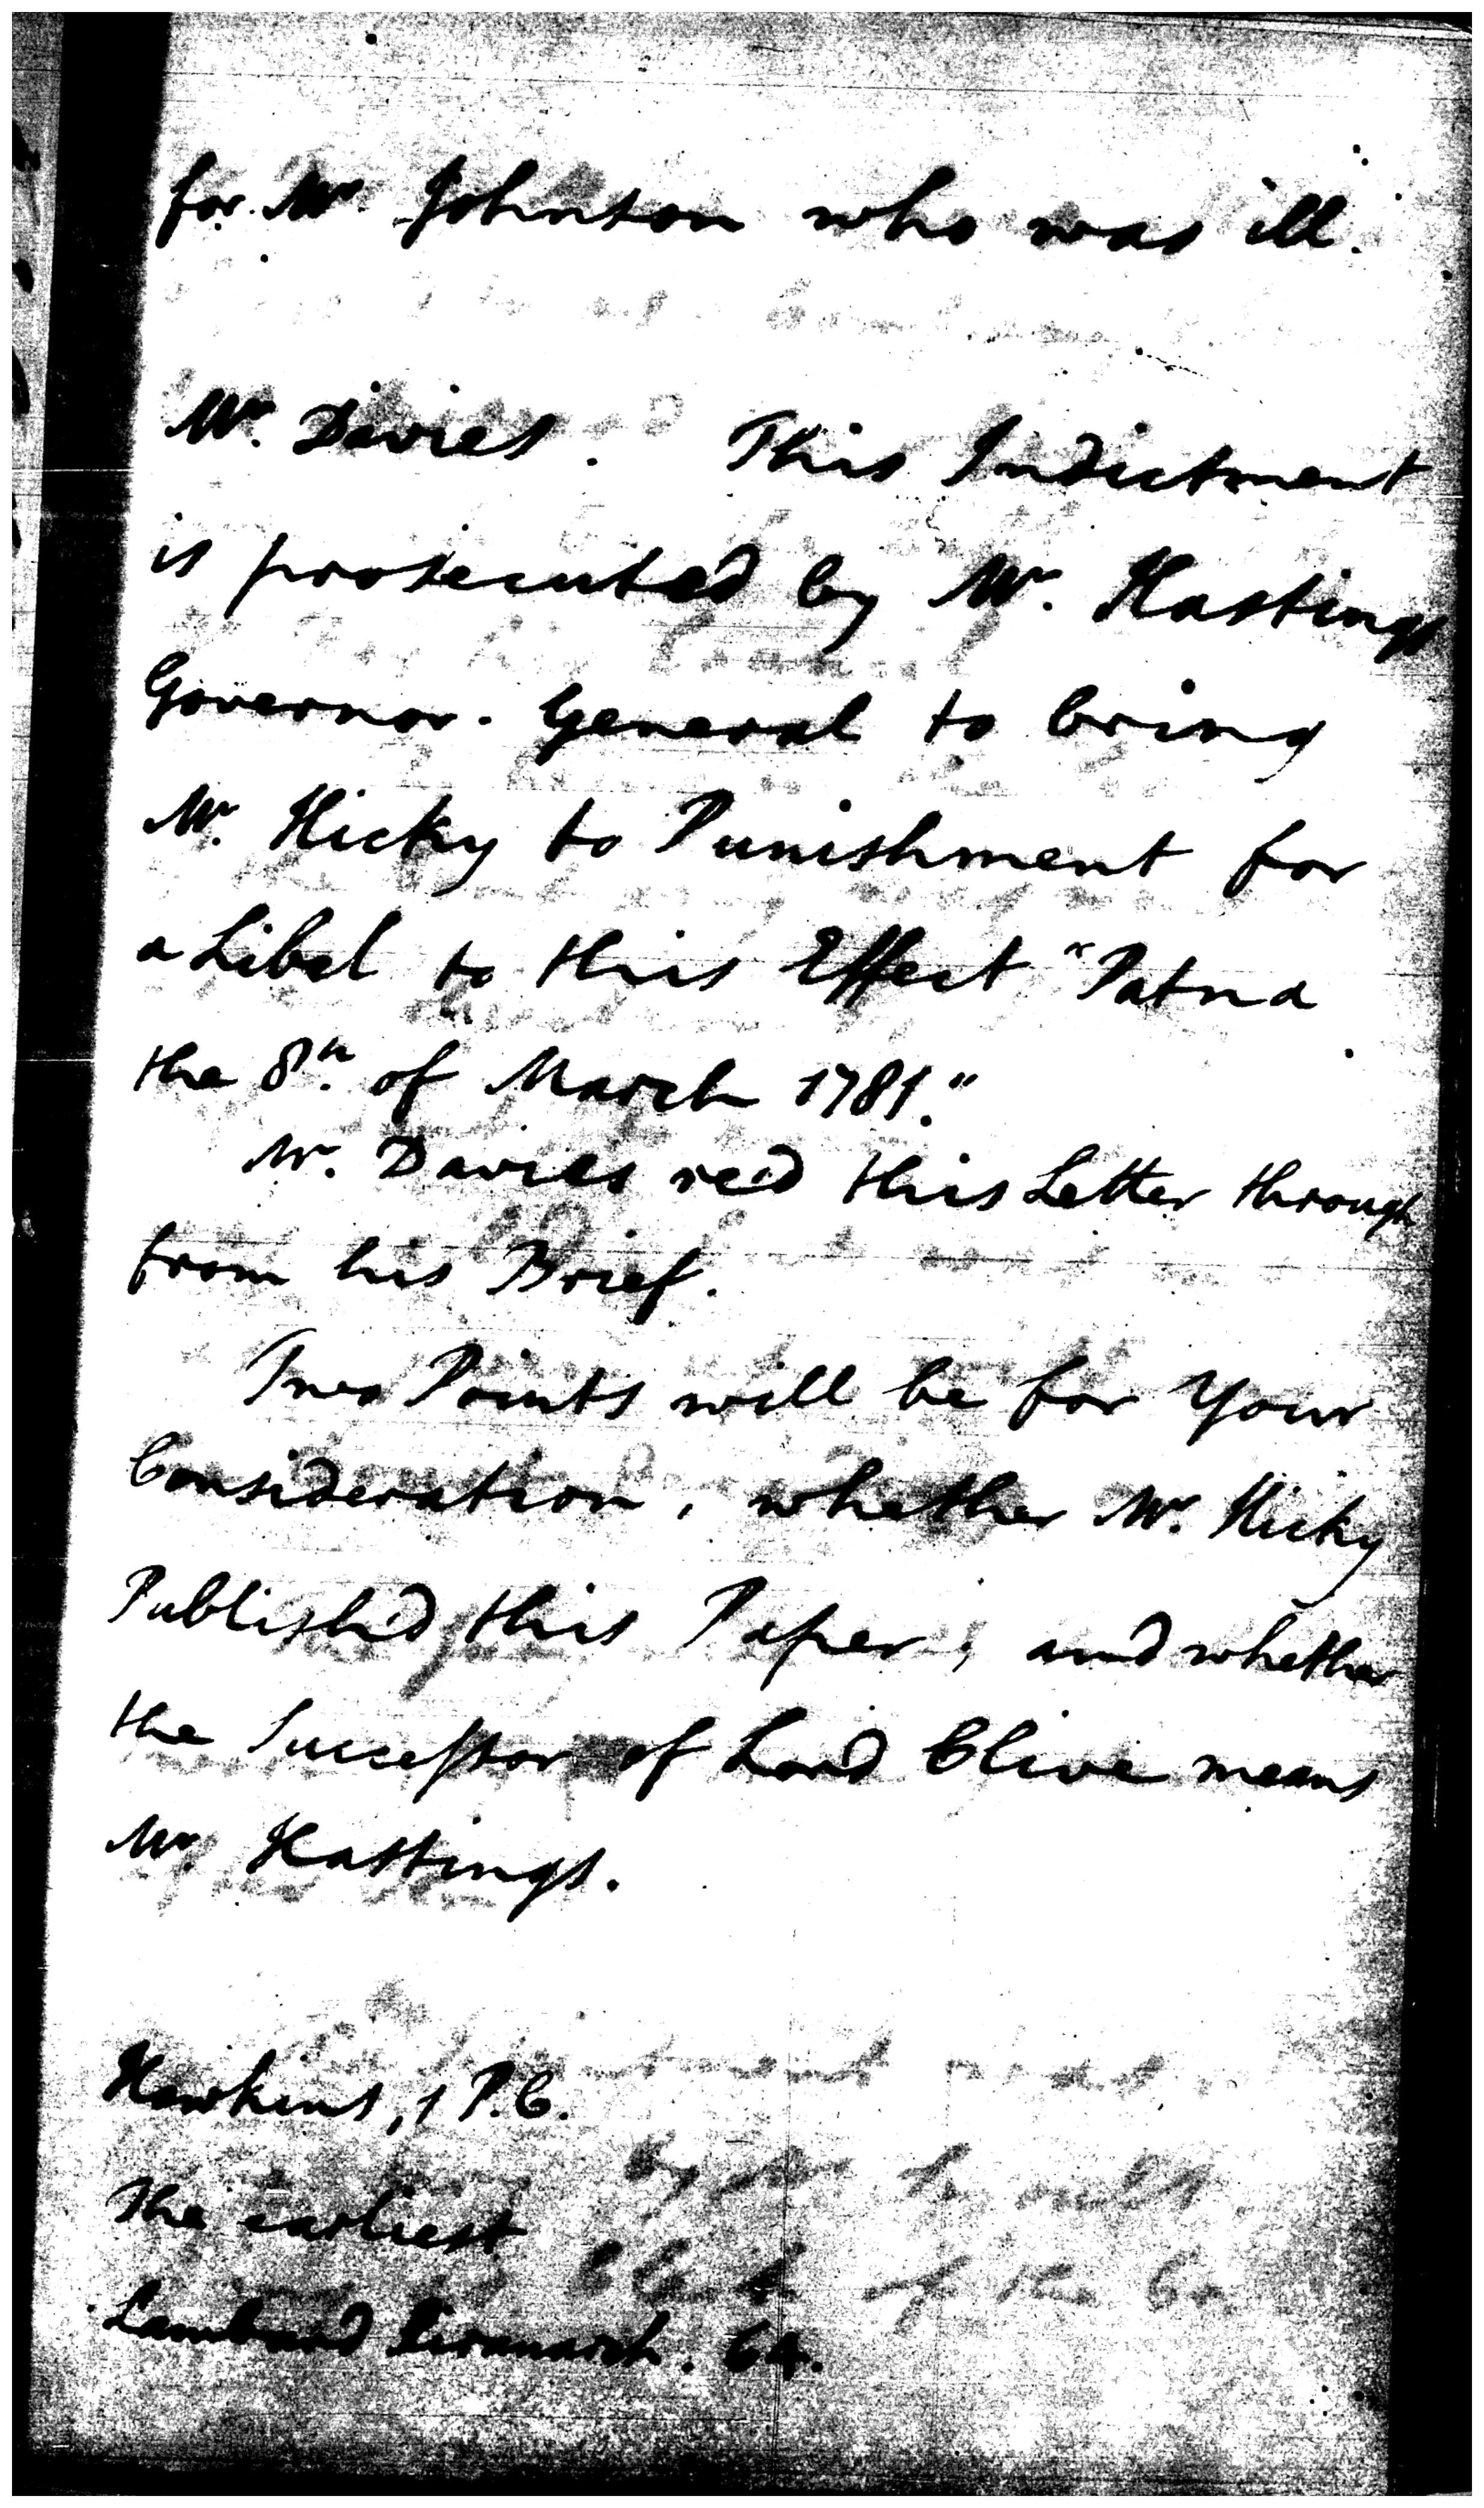 for Mr. Johnson who was ill.
Mr. Davies. This Indictment
is prosecuted by Mr. Hastings
Governor-General to bring
Mr. Hicky to Punishment for
a Libel to this Effect "Patna
the 8th. of March 1781."
Mr. Davies red this Letter through
from his Brief.
Two Points will be for Your
Consideration, whether Mr. Hicky
Publish'd this Paper; and whether
the Successor of Lord Clive means
Mr. Hastings.
Hawkins, 1 P.C.
The earliest
Lambard 64.